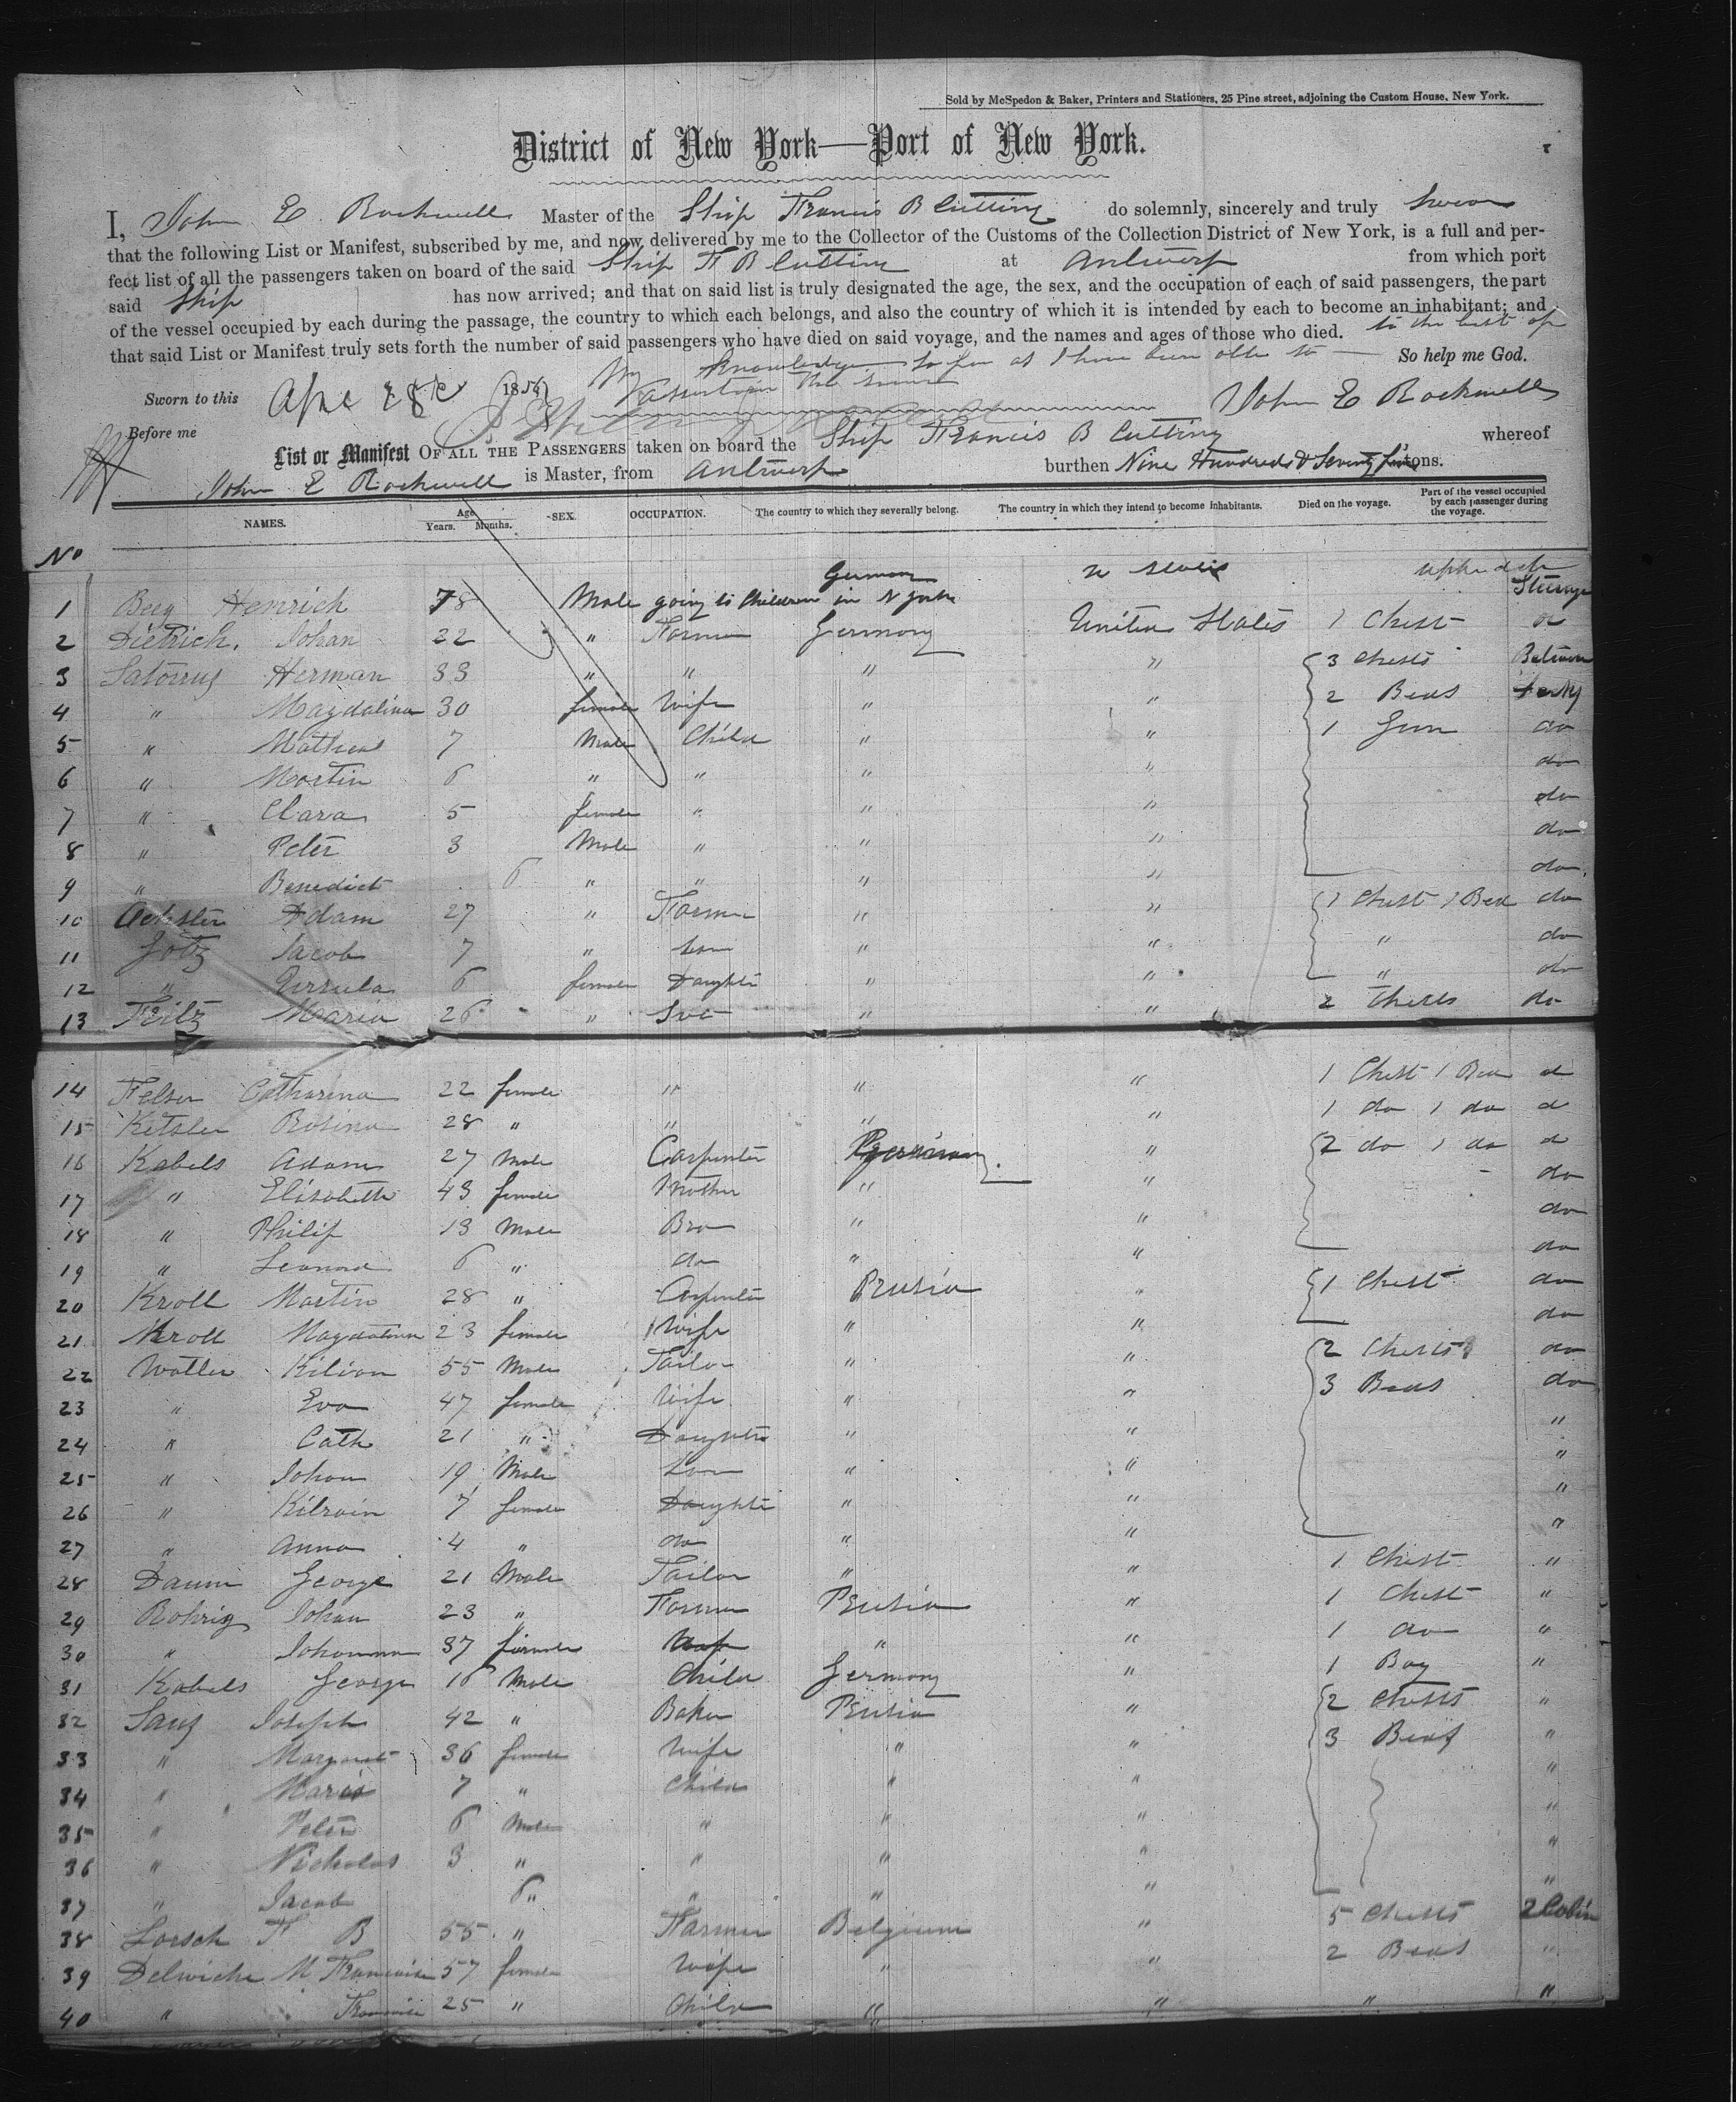 Sold by McSpedon & Baker, Printers and Stationers, 25 Pine street, adjoining the Custom House, New York.
District of New York—Port of New York.
I, John E. Rockwell Master of the Ship Francis B Cutting do solemnly, sincerely and truly swear
that the following List or Manifest, subscribed by me, and now delivered by me to the Collector of the Customs of the Collection District of New York, is a full and per-
fect list of all the passengers taken on board of the said Ship F B Cutting at Antwerp from which port
said Ship has now arrived; and that on said list is truly designated the age, the sex, and the occupation of each of said passengers, the part
of the vessel occupied by each during the passage, the country to which each belongs, and also the country of which it is intended by each to become an inhabitant; and
that said List or Manifest truly sets forth the number of said passengers who have died on said voyage, and the names and ages of those who died. to the best of
my knowledge so far as I have been able to So help me God.
the same
Sworn to this 185 John E Rockwell
Before me
List or Manifest OF ALL THE PASSENGERS taken on board the Ship Francis B Cutting whereof
John E Rockwell is Master, from Antwerp burthen Nine Hundred & Seventy tons.
NAMES. Age Years. Months. SEX. OCCUPATION. The country to which they severally belong. The country in which they intend to become inhabitants. Died on the voyage. Part of the vessel occupied by each passenger during the voyage.
No
Germany
1 Berg Henrich 78 Male going to Children in N York Steerage
2 Dietrich, Johan 22 " Farmer Germany United States 1 Chest do
3 Satorus Herman 33 " " " " 3 Chests Between
4 " Magdalina 30 female Wife " " 2 Beds
5 " Mathias 7 Male Child " " 1 Gun do
6 " Martin 6 " " " " do
7 " Clara 5 female " " " do
8 " Peter 3 Male " " " do
9 " Benedict 6 " " " " do
10 Adam 27 " Farmer " " 1 Chest 1 Bed do
11 Gotz Jacob 7 " Son " " " do
12 " Ursula 6 female Daughter " " " do
13 Feitz Maria 26 " " " 2 Chests do
14 Felser Catharina 22 female " " " 1 Chest 1 Bed d
15 Ketsler Rosina 28 " " " " 1 do 1 do d
16 Kabels Adam 27 Male Carpenter Germany " 2 do 1 do d
17 " Elisabeth 43 female Mother " " do
18 " Philip 13 Male Bro " " do
19 " Leonard 6 " do " " do
20 Kroll Martin 28 " Carpenter Prusia " 1 Chest do
21 Kroll Magdalina 23 female Wife " " do
22 Walter Kilian 55 Male Tailor " " 2 Chests do
23 " Eva 47 female Wife " " 3 Beds do
24 " Cath 21 " Daughter " " "
25 " Johan 19 Male Son " " "
26 " Kilrain 7 female Daughter " " "
27 " Anna 4 " do " " "
28 Daum George 21 Male Tailor " " 1 Chest "
29 Rohrig Johan 23 " Farmer Prusia " 1 Chest "
30 " Johanna 37 female Wife " " 1 do "
31 Kabels George Male Child Germany " 1 Bag "
32 Sauz Joseph 42 " Baker Prusia " 2 Chests "
33 " Margaret 36 female Wife " " 3 Beds "
34 " Maria 7 " Child " " "
35 " Peter 6 Male " " " "
36 " Nicholas 3 " " " " "
37 " Jacob 6 " " " " "
38 Lorsch F B 55 " Farmer Belgium " 5 Chests 2 Cabin
39 Delwiche M Francoise 57 female Wife " " 2 Beds "
40 " 25 " Child " " " "